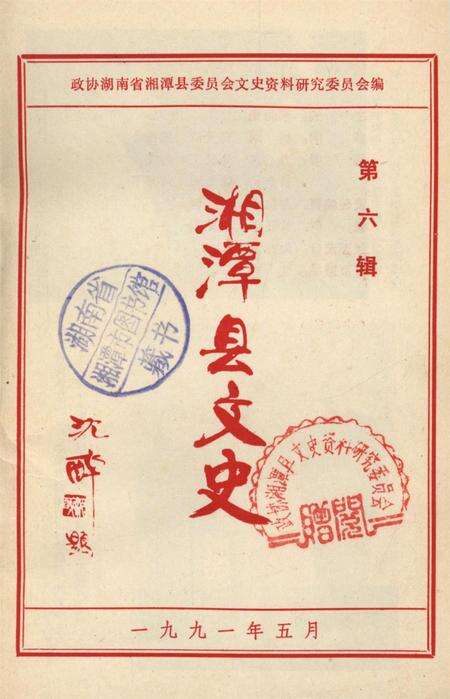 政协湖南省湘潭县委员会文史资料研究委员会编
第六辑
湘潭县文史
湖南省
湘潭市图书馆
藏书
政协湘潭县文史资料研究委员会
赠阅
一九九一年五月